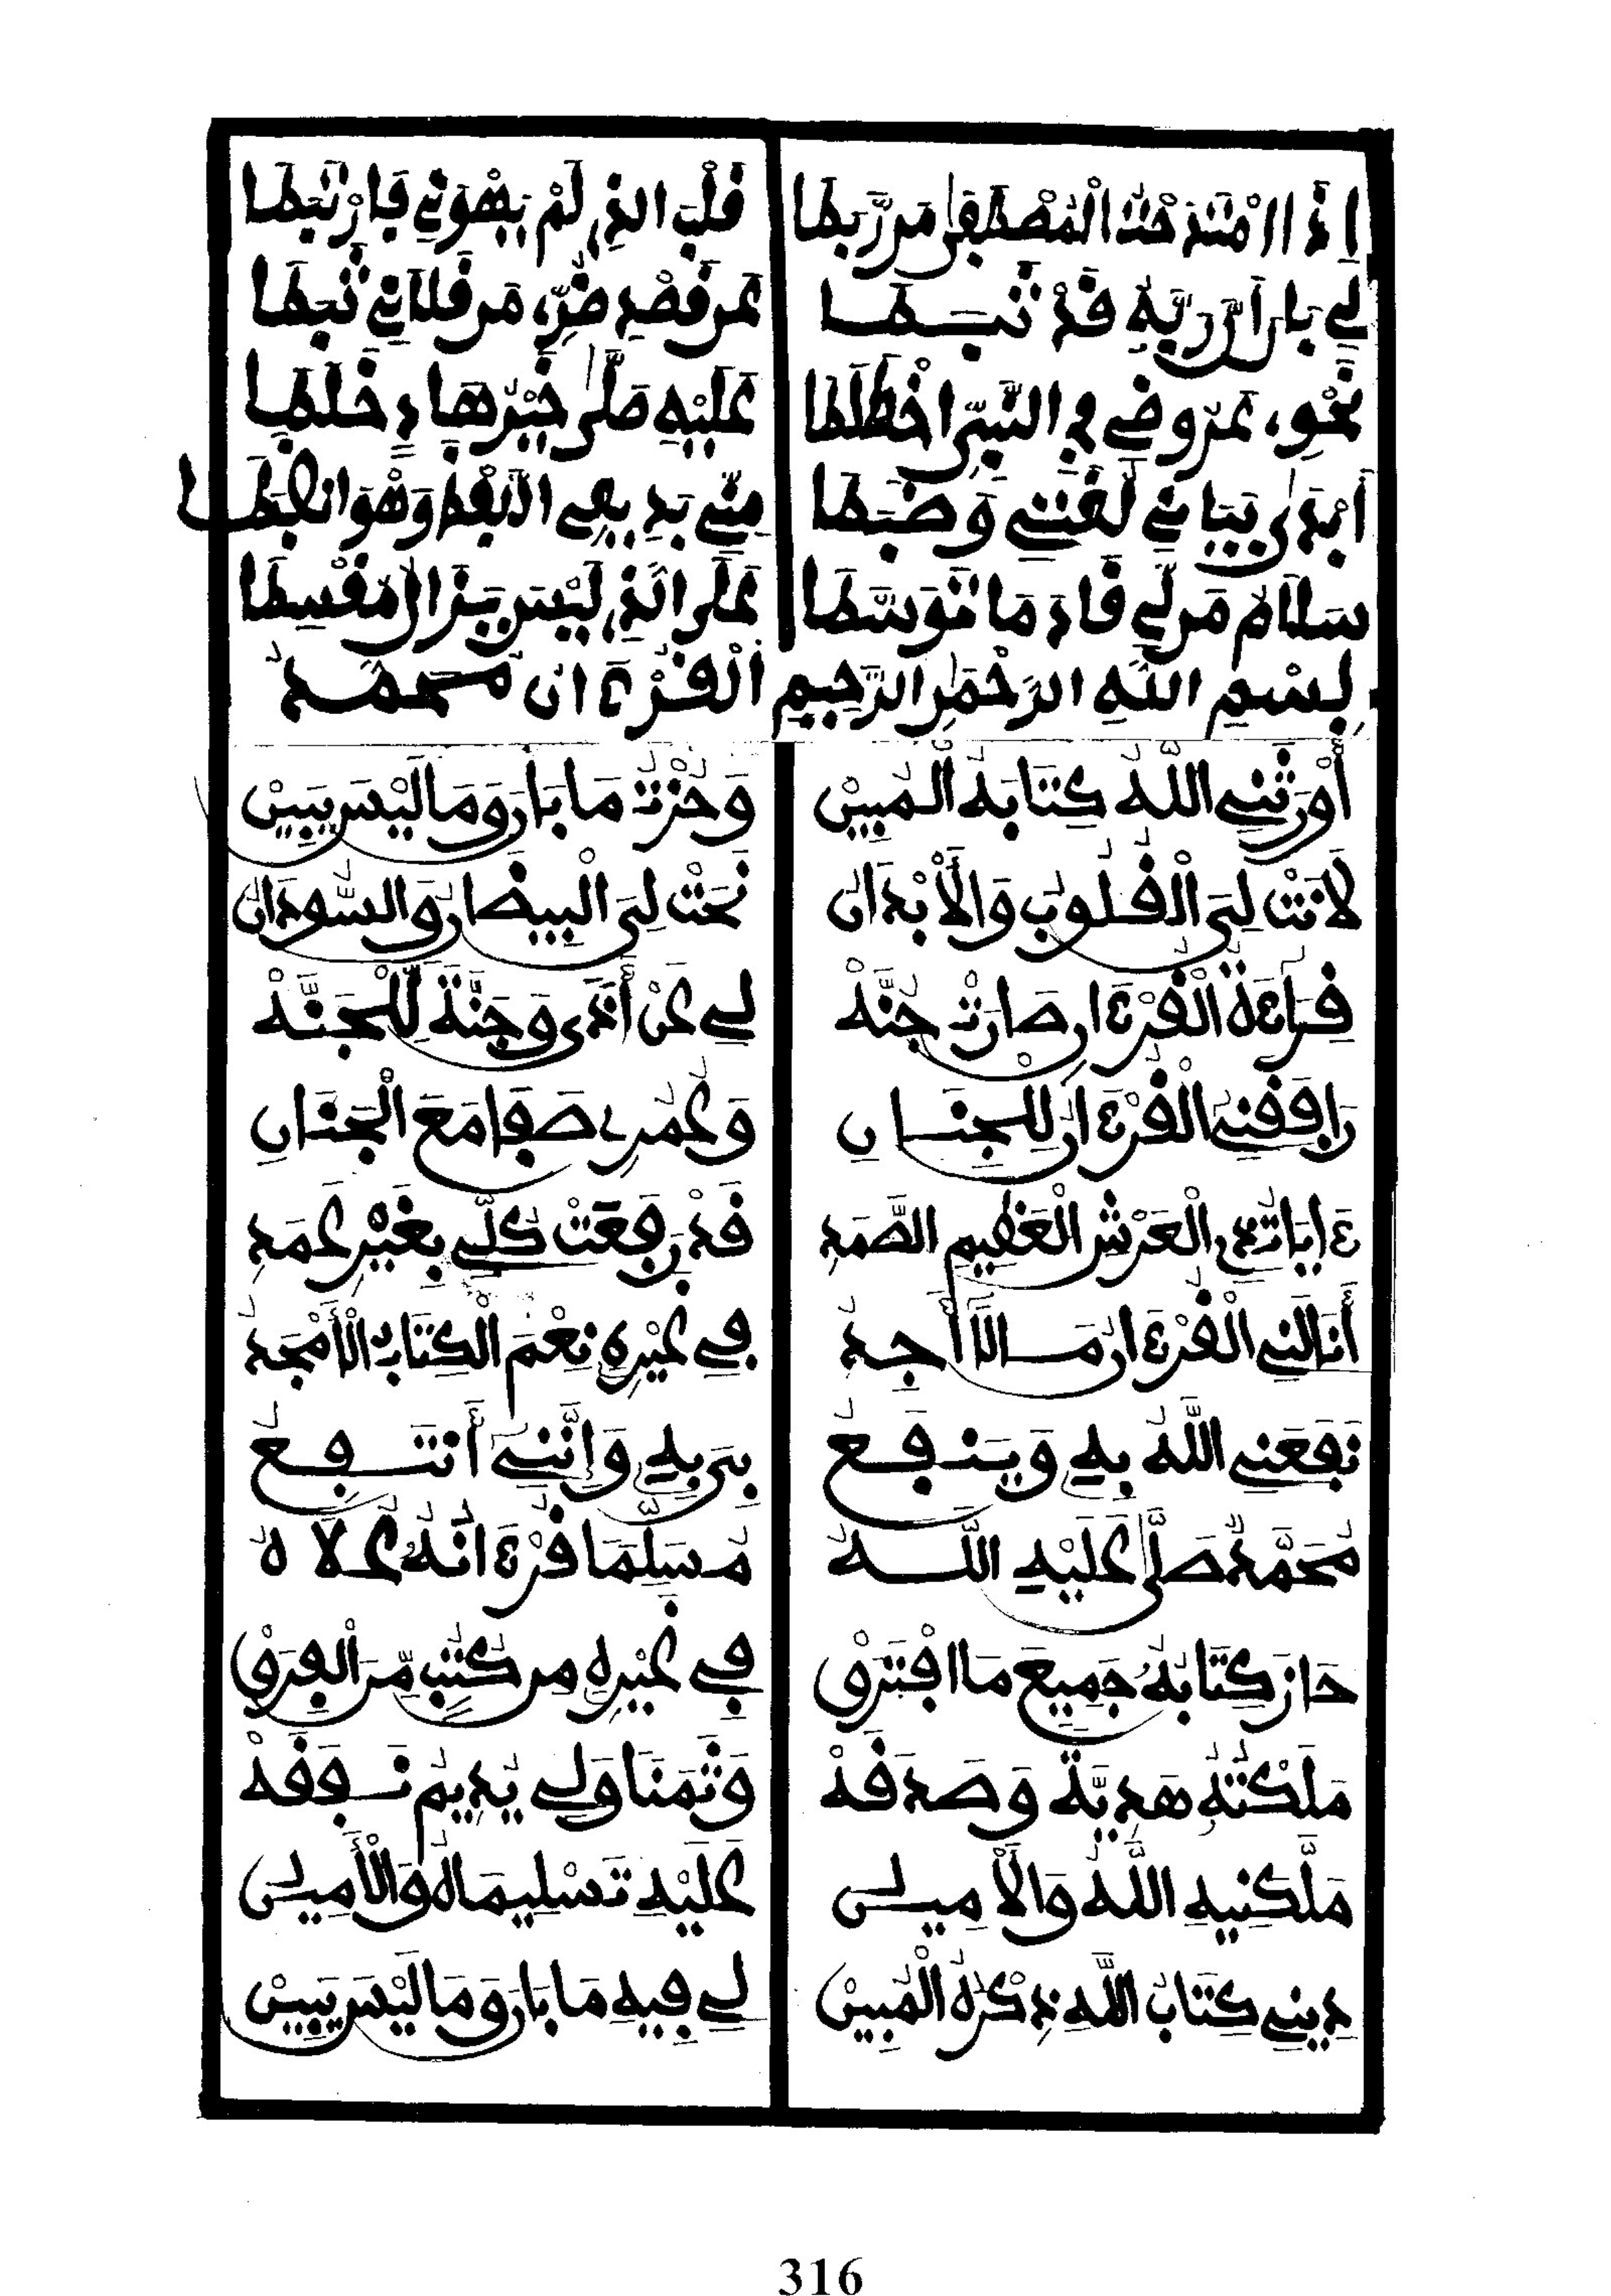 إِذَا امْتَدَحْتُ الْمُصْطَفَى مَن رَّبَطَا قَلْبَ الذِي لَمْ يَهْوَنِي فَارْتَبَطَا
لِي بَانَ أَنَّ رَبَّهُ قَدْ ثَبَطَا عَن قَصْدِ ضُرِّي مَن قَلَانِي ثَبَطَا
نَحْوِي عَرُوضِي فِي النَّبِيِّ اخْطَلَطَا عَلَيْهِ صَلَّى خَيْرُ هَادٍ خَلَطَا
أَبْدَى بَيَانِي لُغَتِي وَضَبَطَا مِنِّي بَدِيعِي
سَلَامُ مَن لِي قَادَ مَا تَوَسَّطَا عَلَى الَّذِي لَيْسَ يَزَالُ مُقْسِطَا
بِسْمِ اللَّهِ الرَّحْمَنِ الرَّحِيمِ الْقُرْءَانُ مُحَمَّدُ
أَوْرَثَنِي اللَّهُ كِتَابَهُ الْمُبِينْ وَحُزْتُ مَا بَانَ وَمَا لَيْسَ يَبِينْ
لَانَتْ لِيَ الْقُلُوبُ وَالْأَبْدَانُ نَحَتْ لِيَ الْبِيضَانُ وَالسُّودَانُ
قِرَاءَةُ الْقُرْءَانِ صَارَتْ جُنَّهْ لِي عَنْ أَذًى وَجَنَّةً لِلْجَنَّهْ
رَافَقَنِي الْقُرْءَانُ لِلْجِنَانِ وَعُمُرِي صَفَا مَعَ الْجَنَانِ
ءَايَاتُ ذِي الْعَرْشِ الْعَظِيمِ الصَّمَدِ قَدْ رَفَعَتْ كُلِّي بِغَيْرِ عَمَدِ
أَنَالَنِي الْقُرْءَانُ مَا لَا أَجِدُ فِي غَيْرِهِ نِعْمَ الْكِتَابُ الْأَمْجَدُ
نَفَعَنِي اللَّهُ بِهِ وَيَنْفَعُ بِيَ بِهِ وَإِنَّنِي أَنْتَفِعُ
مُحَمَّدٌ صَلَّى عَلَيْهِ اللَّهُ مُسَلِّمًا قُرْءَانُهُ عُلَاهُ
حَازَ كِتَابُهُ جَمِيعَ مَا افْتَرَقْ فِي غَيْرِهِ مِن كُتُبٍ مِّنَ الْفِرَقْ
مَلَكْتُهُ هَدِيَّةً وَصَدَقَهْ وَثَمَنًا وَلِي يُدِيمُ نَفَقَهْ
مَلَّكَنِيهِ اللَّهُ وَالْأَمِينُ عَلَيْهِ تَسْلِيمَا لَهُ وَالْأَمِينُ
دِينِي كِتَابُ اللَّهِ ذِكْرُهُ الْمُبِينْ لِي فِيهِ مَا بَانَ وَمَا لَيْسَ يَبِينْ
316